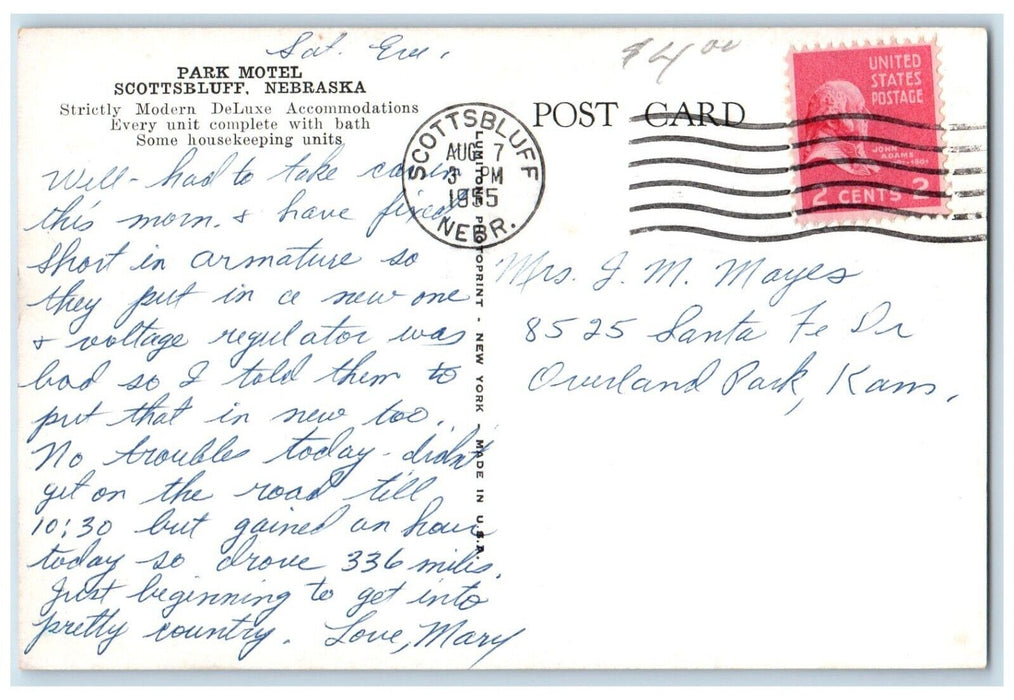 Sat. Eve.
PARK MOTEL
SCOTTSBLUFF, NEBRASKA
Strictly Modern DeLuxe Accommodations
Every unit complete with bath
Some housekeeping units
Will - had to take car in
this morn. & have fixed
short in armature so
they put in a new one
& voltage regulator was
bad so I told them to
put that in new too.
No troubles today - didn't
get on the road till
10:30 but gained an hour
today so drove 336 miles.
Just beginning to get into
pretty country. Love, Mary
LUMITONE PHOTOPRINT - NEW YORK. MADE IN U.S.A.
SCOTTSBLUFF
AUG 7
3 PM
1955
NEBR.
POST CARD
$4.00
UNITED
STATES
POSTAGE
JOHN
ADAMS
2 CENTS 2
Mrs. J. M. Mayes
8525 Santa Fe Dr
Overland Park, Kans.